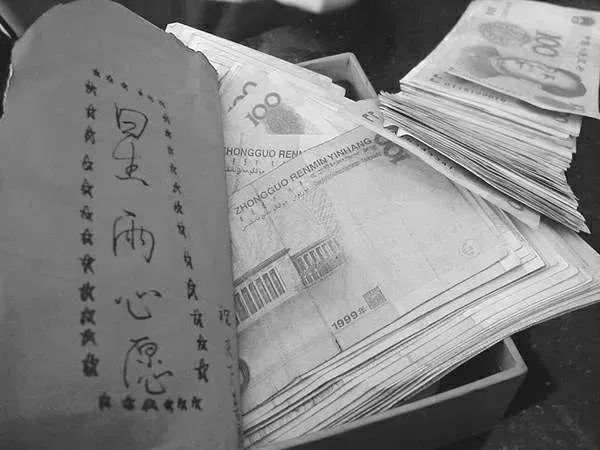 星雨心愿
100
HONGGUO RENMIN YINHANG
ZHONGGUO RENMIN YINHANG
100
1999年
100